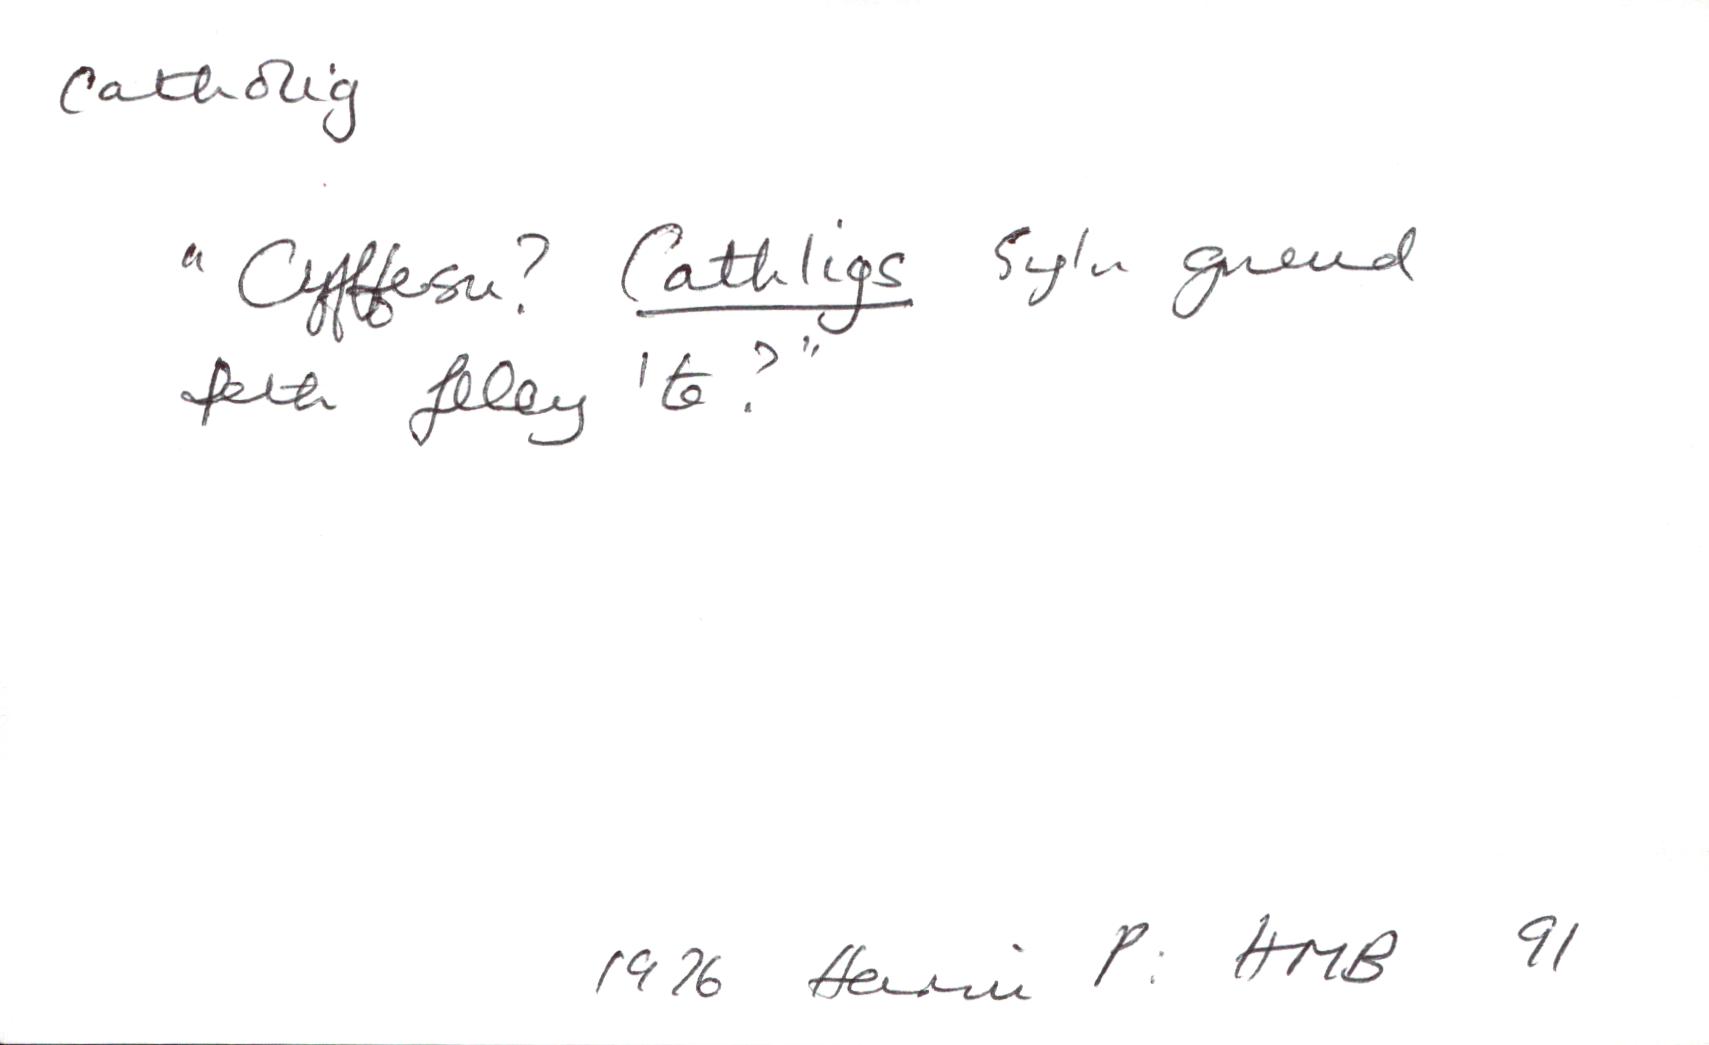 Catholig
"Cyffesu? Cathligs sy'n gneud
peth felly 'te?"
1976 Harri P: HMB 91